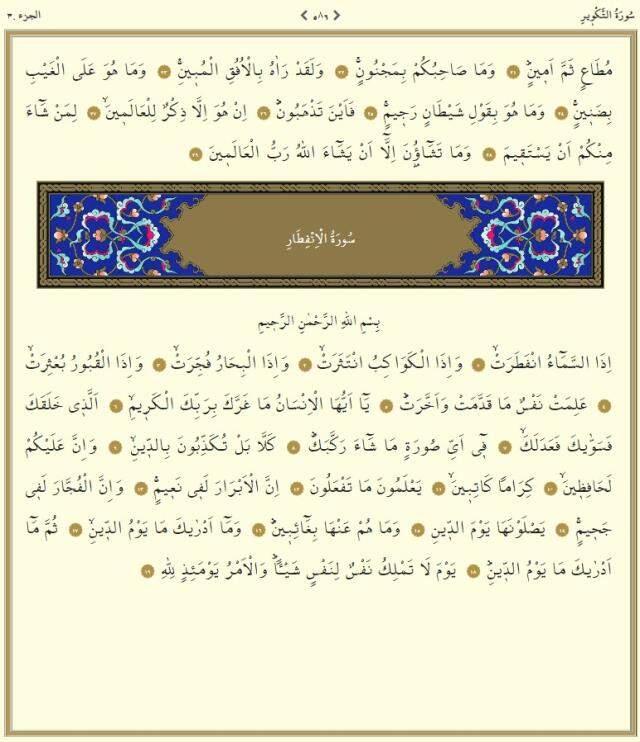 سُورَةُ التَّكْوِيرِ ٥٨٦ الجزء ٣٠
مُطَاعٍ ثَمَّ اَم۪ينٍۜ ٢١ وَمَا صَاحِبُكُمْ بِمَجْنُونٍۚ ٢٢ وَلَقَدْ رَاٰهُ بِالْاُفُقِ الْمُب۪ينِۚ ٢٣ وَمَا هُوَ عَلَى الْغَيْبِ
بِضَن۪ينٍۚ ٢٤ وَمَا هُوَ بِقَوْلِ شَيْطَانٍ رَج۪يمٍۙ ٢٥ فَاَيْنَ تَذْهَبُونَۜ ٢٦ اِنْ هُوَ اِلَّا ذِكْرٌ لِلْعَالَم۪ينَۙ ٢٧ لِمَنْ شَٓاءَ
مِنْكُمْ اَنْ يَسْتَق۪يمَ ٢٨ وَمَا تَشَٓاؤُ۫نَ اِلَّٓا اَنْ يَشَٓاءَ اللّٰهُ رَبُّ الْعَالَم۪ينَ ٢٩
سُورَةُ الْاِنْفِطَارِ
بِسْمِ اللّٰهِ الرَّحْمٰنِ الرَّح۪يمِ
اِذَا السَّمَٓاءُ انْفَطَرَتْۙ ١ وَاِذَا الْكَوَاكِبُ انْتَثَرَتْۙ ٢ وَاِذَا الْبِحَارُ فُجِّرَتْۙ ٣ وَاِذَا الْقُبُورُ بُعْثِرَتْۙ
٤ عَلِمَتْ نَفْسٌ مَا قَدَّمَتْ وَاَخَّرَتْۜ ٥ يَٓا اَيُّهَا الْاِنْسَانُ مَا غَرَّكَ بِرَبِّكَ الْكَر۪يمِۙ ٦ اَلَّذ۪ي خَلَقَكَ
فَسَوّٰيكَ فَعَدَلَكَۙ ٧ ف۪ٓي اَيِّ صُورَةٍ مَا شَٓاءَ رَكَّبَكَۜ ٨ كَلَّا بَلْ تُكَذِّبُونَ بِالدّ۪ينِۙ ٩ وَاِنَّ عَلَيْكُمْ
لَحَافِظ۪ينَۙ ١٠ كِرَامًا كَاتِب۪ينَۙ ١١ يَعْلَمُونَ مَا تَفْعَلُونَ ١٢ اِنَّ الْاَبْرَارَ لَف۪ي نَع۪يمٍۚ ١٣ وَاِنَّ الْفُجَّارَ لَف۪ي
جَح۪يمٍۚ ١٤ يَصْلَوْنَهَا يَوْمَ الدّ۪ينِ ١٥ وَمَا هُمْ عَنْهَا بِغَٓائِب۪ينَۜ ١٦ وَمَٓا اَدْرٰيكَ مَا يَوْمُ الدّ۪ينِۙ ١٧ ثُمَّ مَٓا
اَدْرٰيكَ مَا يَوْمُ الدّ۪ينِۜ ١٨ يَوْمَ لَا تَمْلِكُ نَفْسٌ لِنَفْسٍ شَيْـًٔاۜ وَالْاَمْرُ يَوْمَئِذٍ لِلّٰهِ ١٩